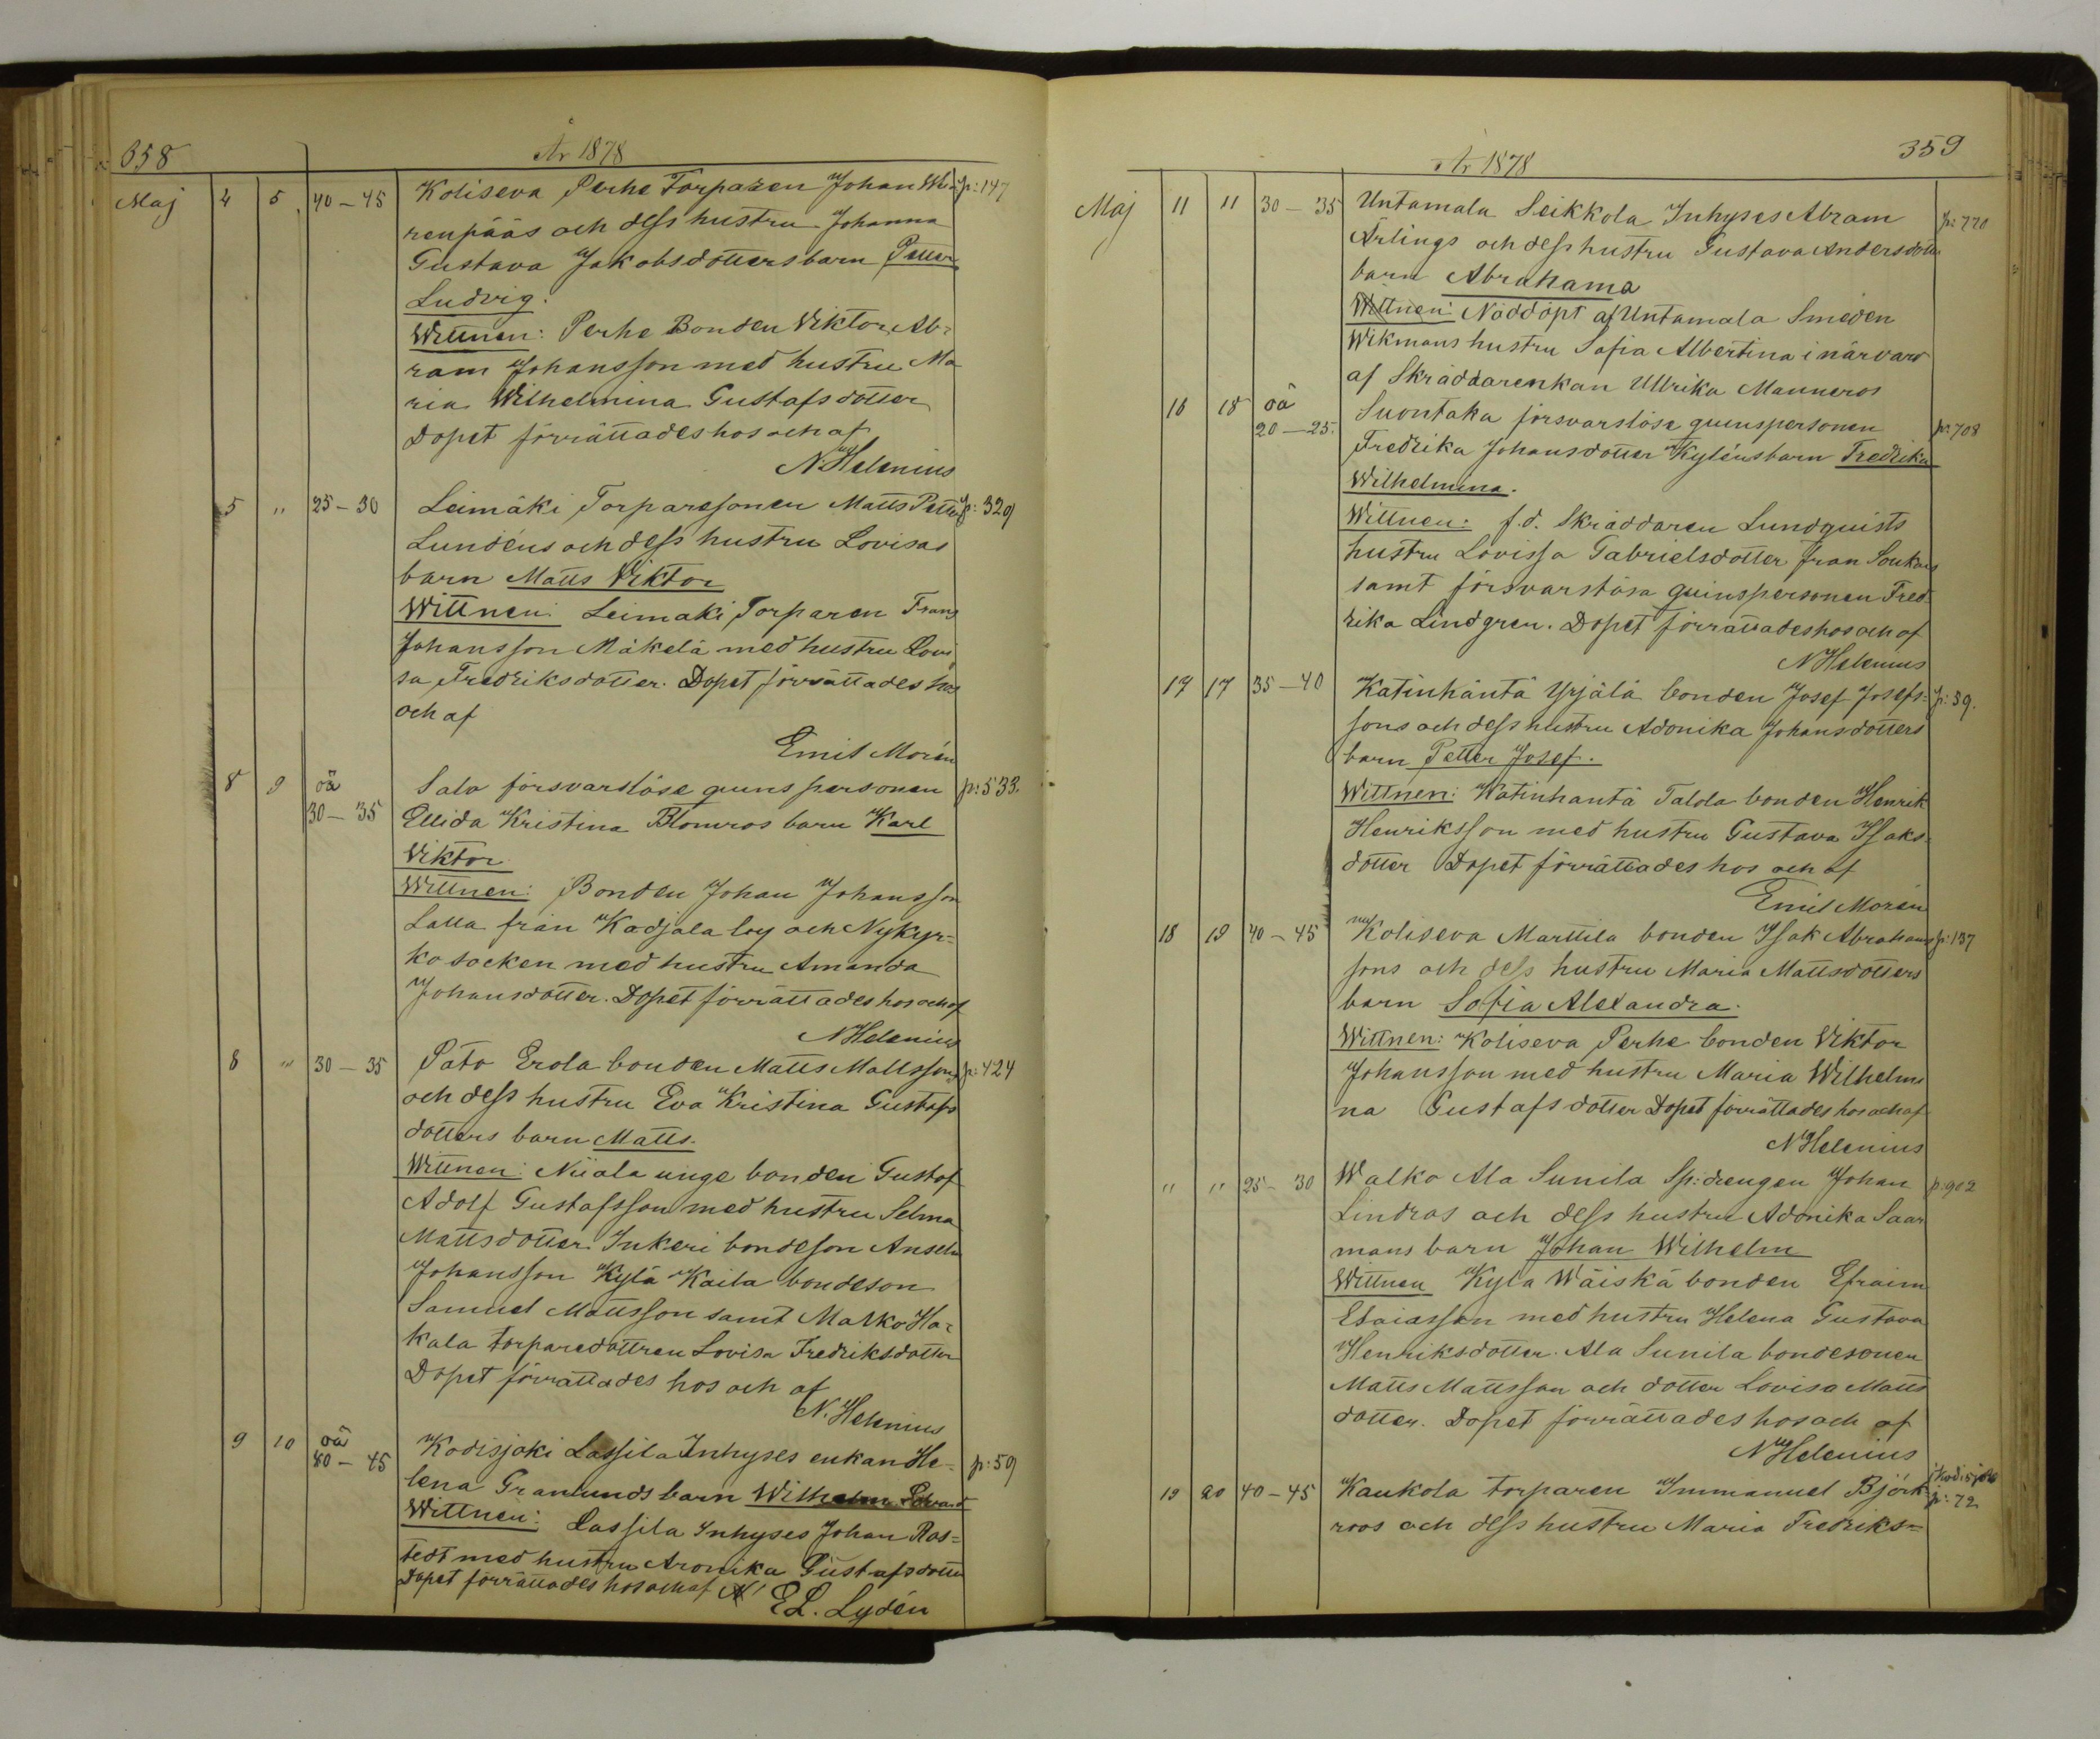 358
År 1878
Maj 4 5 40-45 Koliseva Perhe Torparen Johan Wii= p: 147
renpääs och dess hustru Johanna
Gustava Jakobsdotters barn Petter
Ludvig.
Wittnen: Perhe Bonden Viktor Ab=
ram Johansson med hustru Ma
ria Wilhelmina Gustafsdotter
Dopet förrättades hos och af
N. Helenius
5 " 25-30 Leimäki Torparesonen Matts Petter p: 329
Lundéns och dess hustru Lovisas
barn Matts Viktor
Wittnen: Leimaki Torparen Frans
Johansson Mäkelä med hustru Lovi
sa Fredriksdotter. Dopet förrättades hos
och af
Emil Morén
8 9 oä 30-35 Salo försvarslöse quinspersonen p: 533.
Ellida Kristina Blomros barn Karl
Viktor
Wittnen: Bonden Johan Johansson
Lalla från Kadjala by och Nykyr=
ko socken med hustru Amanda
Johansdotter. Dopet förrättades hos och af
N Helenius
8 " 30-35 Pato Erola bonden Matts Mattssons p: 424
och dess hustru Eva Kristina Gustafs
dotters barn Matts.
Wittnen: Niiala unge bonden Gustaf
Adolf Gustafsson med hustru Selma
Mattsdotter. Inkeri bondeson Anselm
Johansson Kylä Kaila bondeson
Samuel Mattsson samt Malko Ha=
kala torparedottren Lovisa Fredriksdotter
Dopet förrättades hos och af
N. Helenius
9 10 oä 40-45 Kodisjoki Lassila Inhyses enkan He= p: 59
lena Granlunds barn Wilhelm Edvard
Wittnen: Lassila Inhyses Johan Ros=
tedt med hustru Aronika Gustafsdotter
Dopet förrättades hos och af
E L. Lydén
359
År 1878
Maj 11 11 30-35 Untamala Seikkola Inhyses Abram p: 770
Ärlings och dess hustru Gustava Andersdotters
barn Abrahama
Wittnen: Nöddöpt af Untamala Smeden
Wikmans hustru Sofia Albertina i närvaro
af Skräddarenkan Ullrika Manneros
16 18 oä 20-25. Suontaka försvarslöse quinspersonen p: 708
Fredrika Johansdotter Kyléns barn Fredrika
Wilhelmina.
Wittnen: f.d. Skräddaren Lundquists
hustru Lovissa Gabrielsdotter från Soukais
samt försvarslösa quinspersonen Fred=
rika Lindgren. Dopet förrättades hos och af
N Helenius
17 17 35-40 Katinhäntä Yrjälä bonden Josef Josefs= p: 39.
sons och dess hustru Adonika Johansdotters
barn Petter Josef.
Wittnen: Katinhantä Talola bonden Henrik
Henriksson med hustru Gustava Isaks=
dotter Dopet förrättades hos och af
Emil Morén
18 19 40-45 Koliseva Marttila bonden Isak Abrahams p: 137
sons och dess hustru Maria Mattsdotters
barn Sofia Alexandra.
Wittnen: Koliseva Perhe bonden Viktor
Johansson med hustru Maria Wilhelmi
na Gustafsdotter Dopet förrättades hos och af
N Helenius
" " 25-30 Walko Ala Sunila Sp: drengen Johan p: 902
Lindros och dess hustru Adonika Saar
mans barn Johan Wilhelm
Wittnen Kyla Wäiskä bonden Efraim
Esaiasson med hustru Helena Gustava
Henriksdotter. Ala Sunila bondesonen
Matts Mattsson och dotter Lovisa Matts
dotter. Dopet förrättades hos och af
N Helenius
19 20 40-45 Kaukola torparen Immanuel Björk= Kodisjoki p: 72
roos och dess hustru Maria Fredriks=